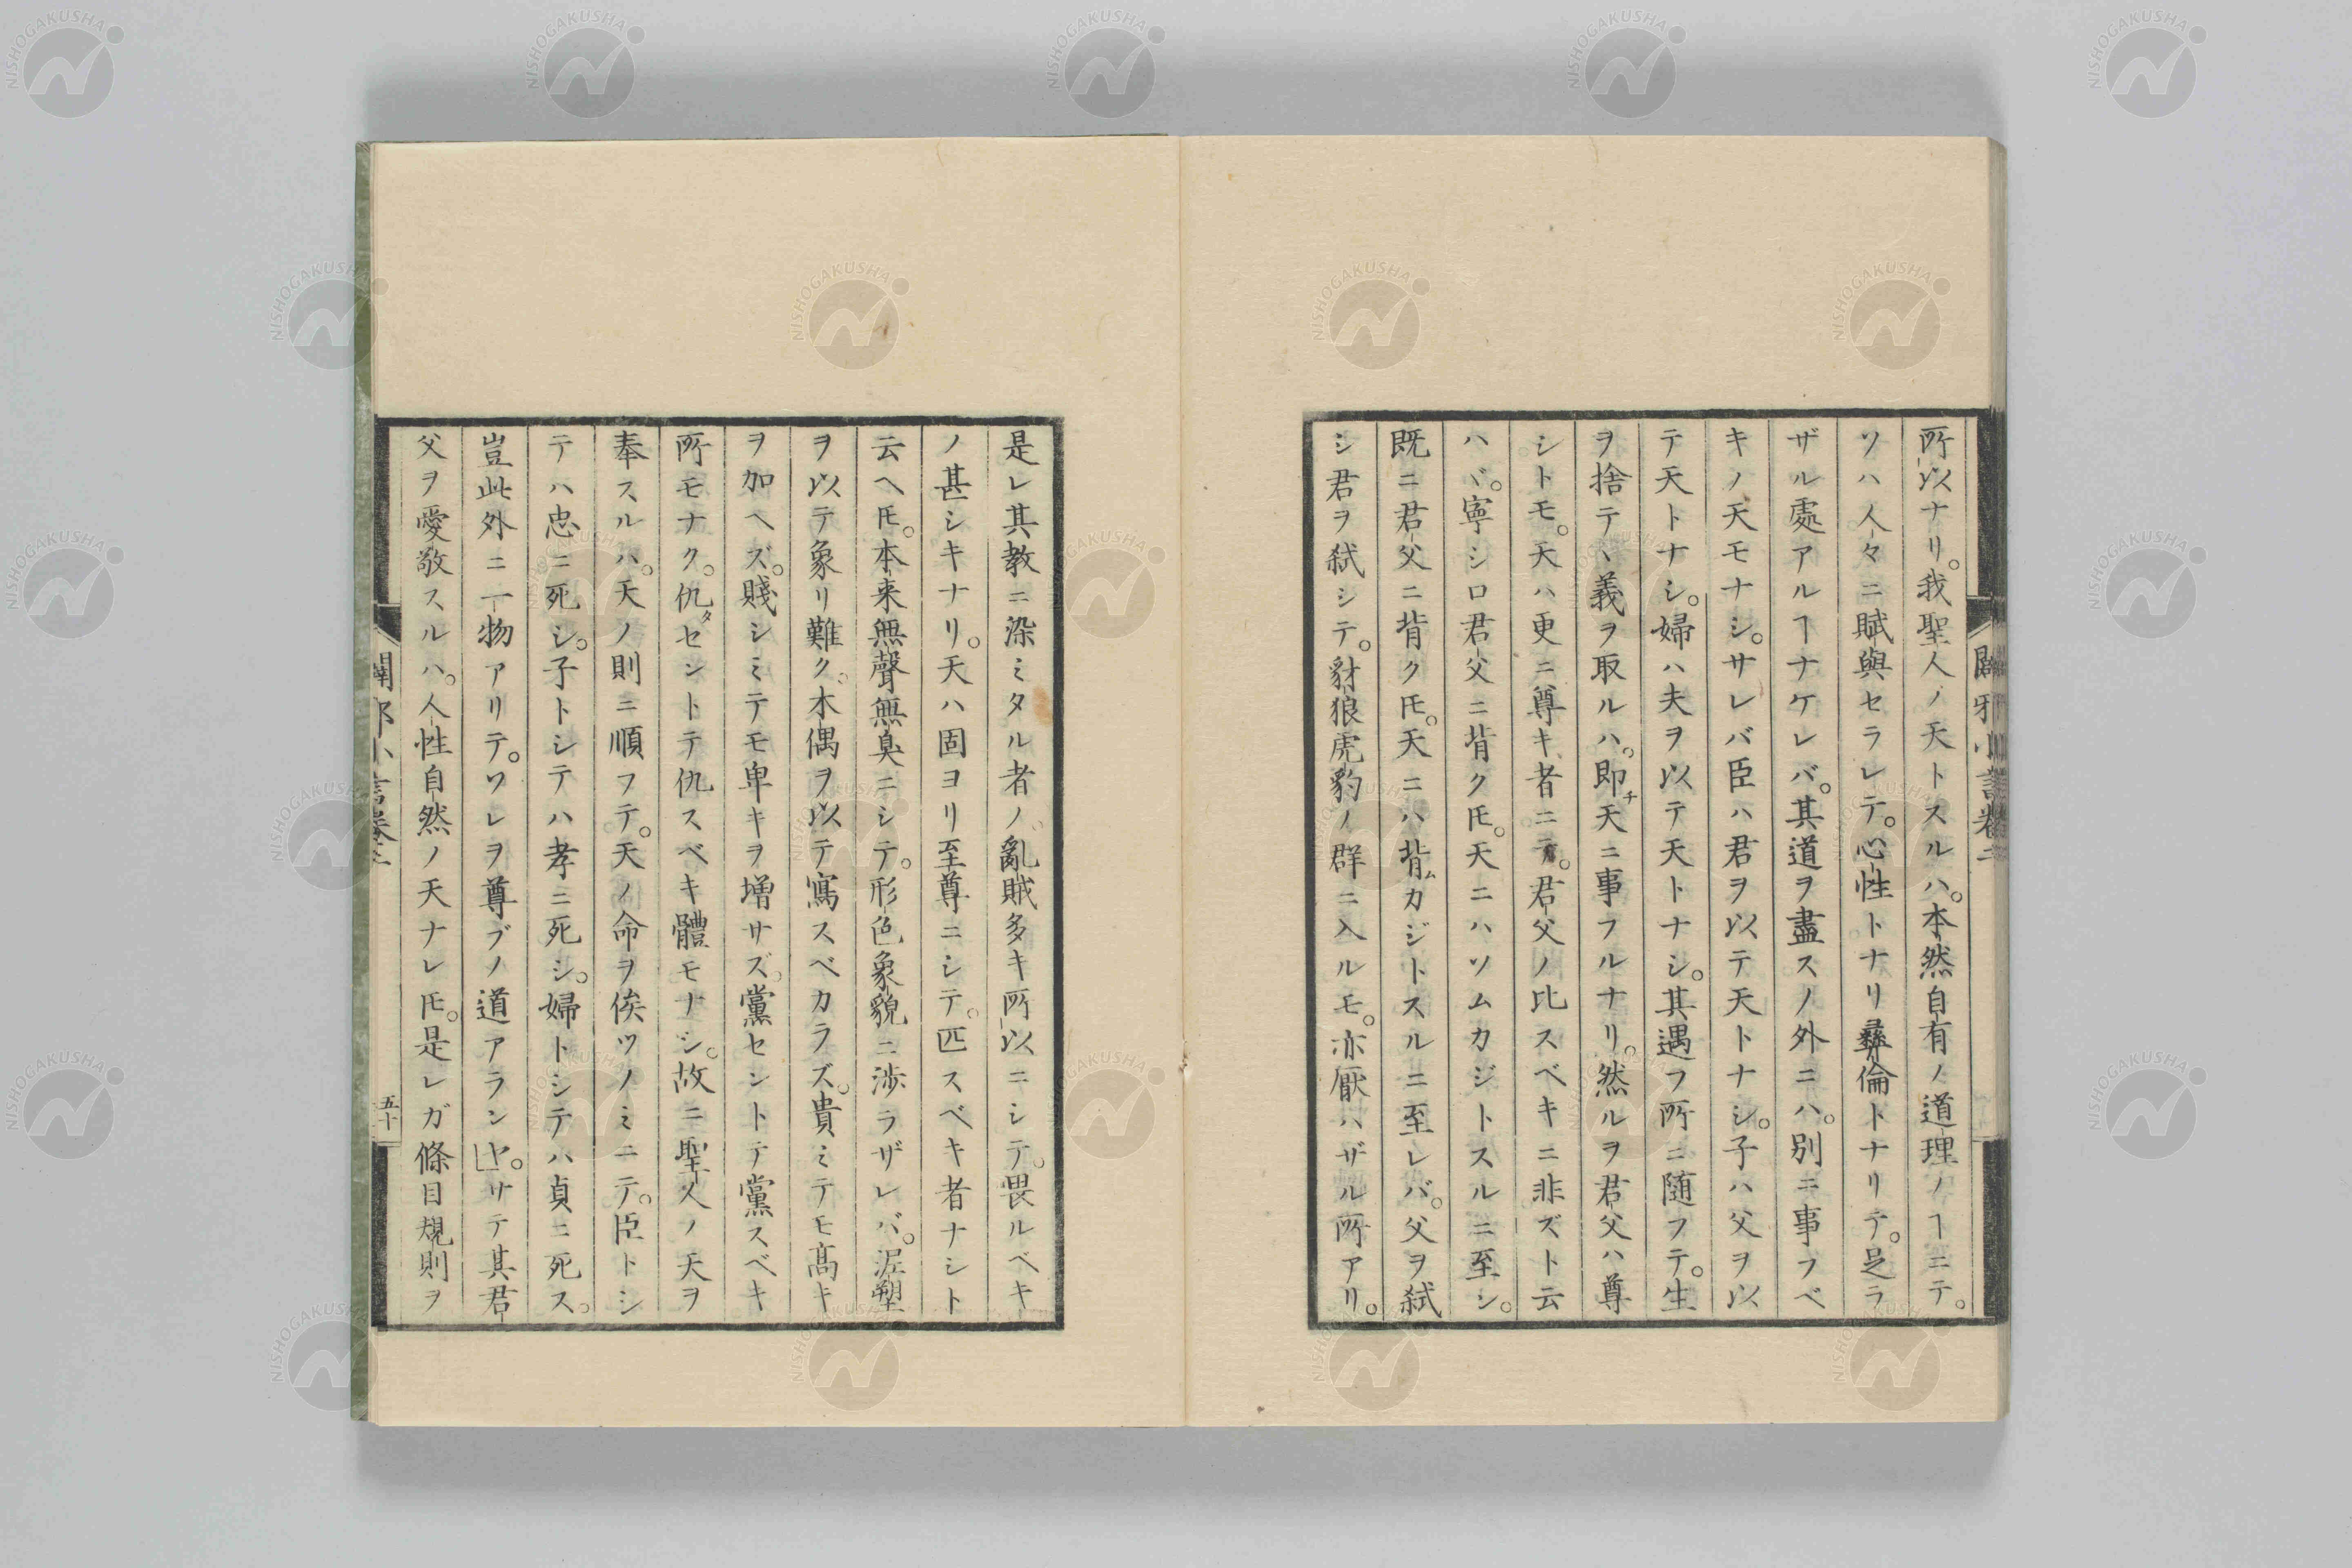 所以ナリ。我聖人ノ天トスルハ。本然自有ノ道理ノヿニテ。
ソハ人々ニ賦與セラレテ。心性トナリ彝倫トナリテ。足ラ
ザル處アルヿナケレバ。其道ヲ盡スノ外ニハ。別ニ事フベ
キノ天モナシ。サレバ臣ハ君ヲ以テ天トナシ。子ハ父ヲ以
テ天トナシ。婦ハ夫ヲ以テ天トナシ。其遇フ所ニ随フテ。生
ヲ捨テヽ義ヲ取ルハ。即チ天ニ事フルナリ。然ルヲ君父ハ尊
シトモ。天ハ更ニ尊キ者ニテ。君父ノ比スベキニ非ズト云
ハヾ。寧シロ君父ニ背クㇳモ。天ニハソムカジトスルニ至シ。
既ニ君父ニ背クㇳモ。天ニハ背ムカジトスルニ至レバ。父ヲ弑
シ君ヲ弑シテ。豺狼虎豹ノ群ニ入ルモ。亦厭ハザル所アリ。
闢邪小言卷二
是レ其教ニ染ミタル者ノ亂賊多キ所以ニシテ。畏ルベキ
ノ甚シキナリ。天ハ固ヨリ至尊ニシテ。匹スベキ者ナシト
云ヘㇳモ。本来無聲無臭ニシテ。形色象貌ニ渉ラザレバ。泥塑
ヲ以テ象リ難ク。木偶ヲ以テ寫スベカラズ。貴ミテモ髙キ
ヲ加ヘズ。賤シミテモ卑キヲ増サズ。黨セントテ黨スベキ
所モナク。仇タセントテ仇スベキ體モナシ。故ニ聖人ノ天ヲ
奉スルハ。天ノ則ニ順フテ。天ノ命ヲ俟ツノミニテ。臣トシ
テハ忠ニ死シ。子トシテハ孝ニ死シ。婦トシテハ貞ニ死ス。
豈此外ニ一物アリテ。ワレヲ尊ブノ道アランヤ。サテ其君
父ヲ愛敬スルハ。人性自然ノ天ナレㇳモ。是レガ條目規則ヲ
闢邪小言卷二
五十
NISHOGAKUSHA